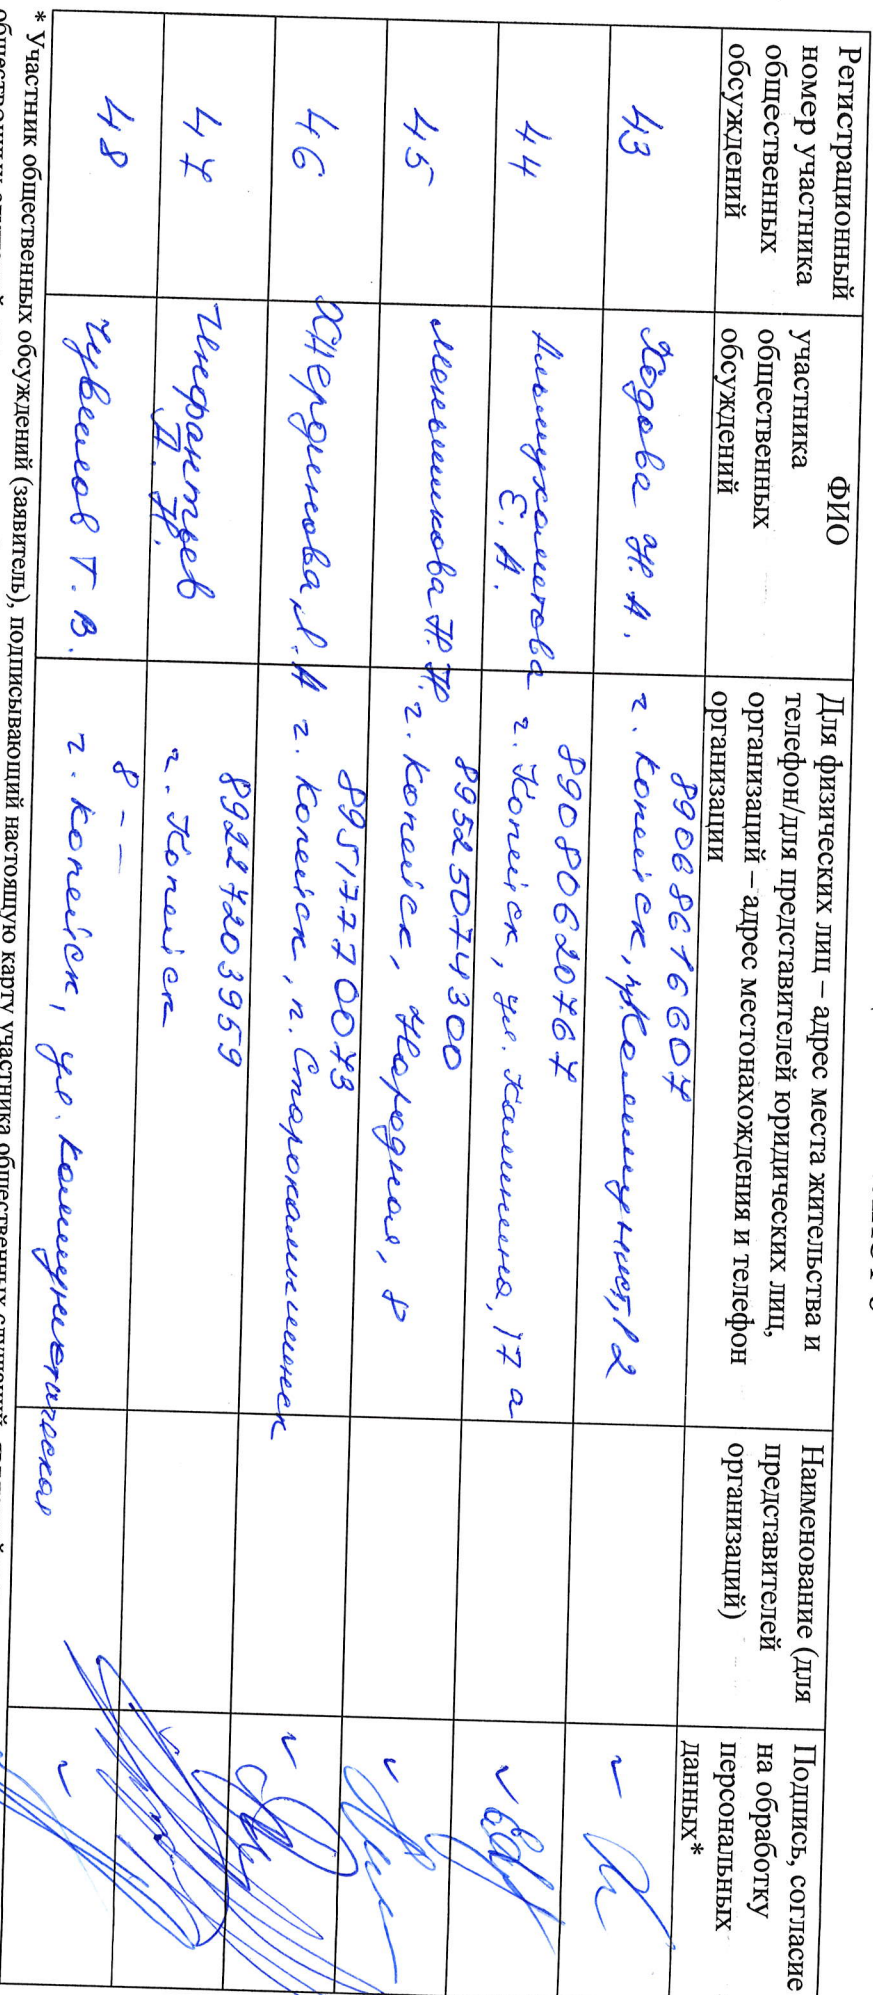 Регистрационный номер участника общественных обсуждений
ФИО участника общественных обсуждений
Для физических лиц – адрес места жительства и телефон/для представителей юридических лиц, организаций – адрес местонахождения и телефон организации
Наименование (для представителей организаций)
Подпись, согласие на обработку персональных данных*
43
Ходова Н. А.
89068616607
г. Копейск,
44
Альмухаметова
Е. А.
89080620767
г. Копейск, ул. Калинина, 17 а
45
Меньшикова Н. Н.
89525074300
г. Копейск, Народная, 8
46
Л. А
89517770073
г. Копейск, п. Старокамышинск
47
Инфантьев
89227203959
г. Копейск
48
Чувашов Т. В.
8 - -
г. Копейск, ул. Коммунистическая
* Участник общественных обсуждений (заявитель), подписывающий настоящую карту участника общественных слушаний,